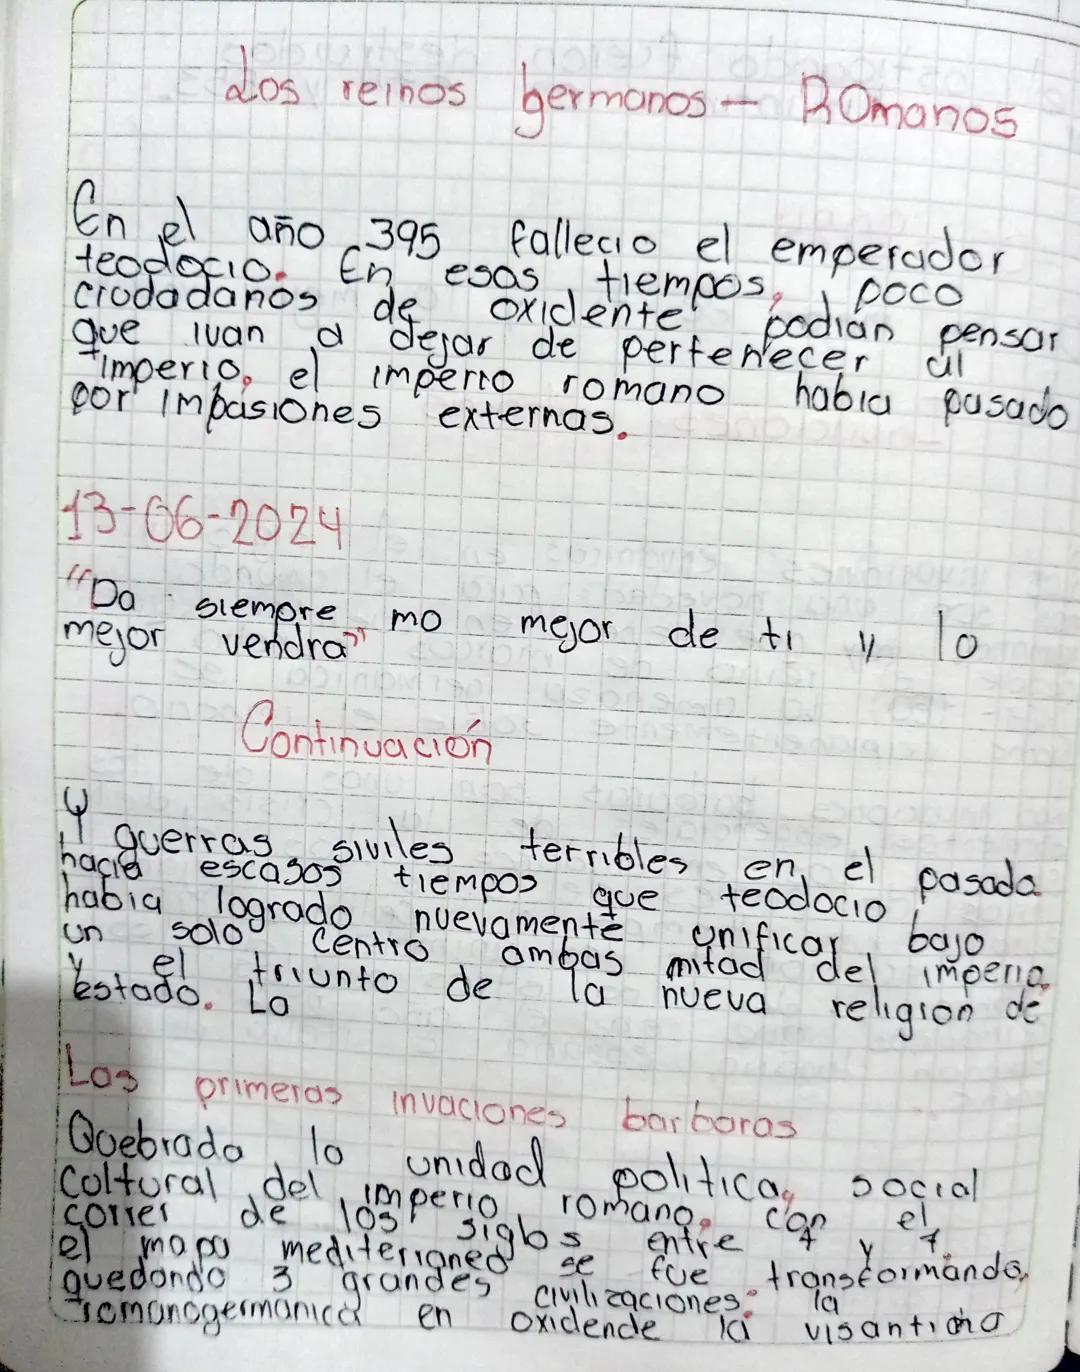 Los reinos germanos - ROmanos
En el año 395 fallecio el emperador
teodocio. En esas tiempos, poco
ciodadanos de oxidente podian pensar
que ivan a dejar de pertenecer al
imperio, el imperio romano habia pasado
por impasiones externas.
13-06-2024
"Da siempre mo mejor de ti y lo
mejor vendra"
Continuación
Y guerras siviles terribles en el pasada
hacia escasos tiempos que teodocio
habia logrado nuevamente unificar bajo
un solo centro ambas mitad del imperio.
y el triunto de la nueva religion de
Estado. La
Las primeras invaciones barbaras
Quebrado lo unidad politica, social
coltural del imperio romano. con el
correr de los siglos entre 4 y 7.
el mapa mediterraneo se fue transformando,
quedando 3 grandes civilizaciones: la
romanogermanica en oxidende la visantina